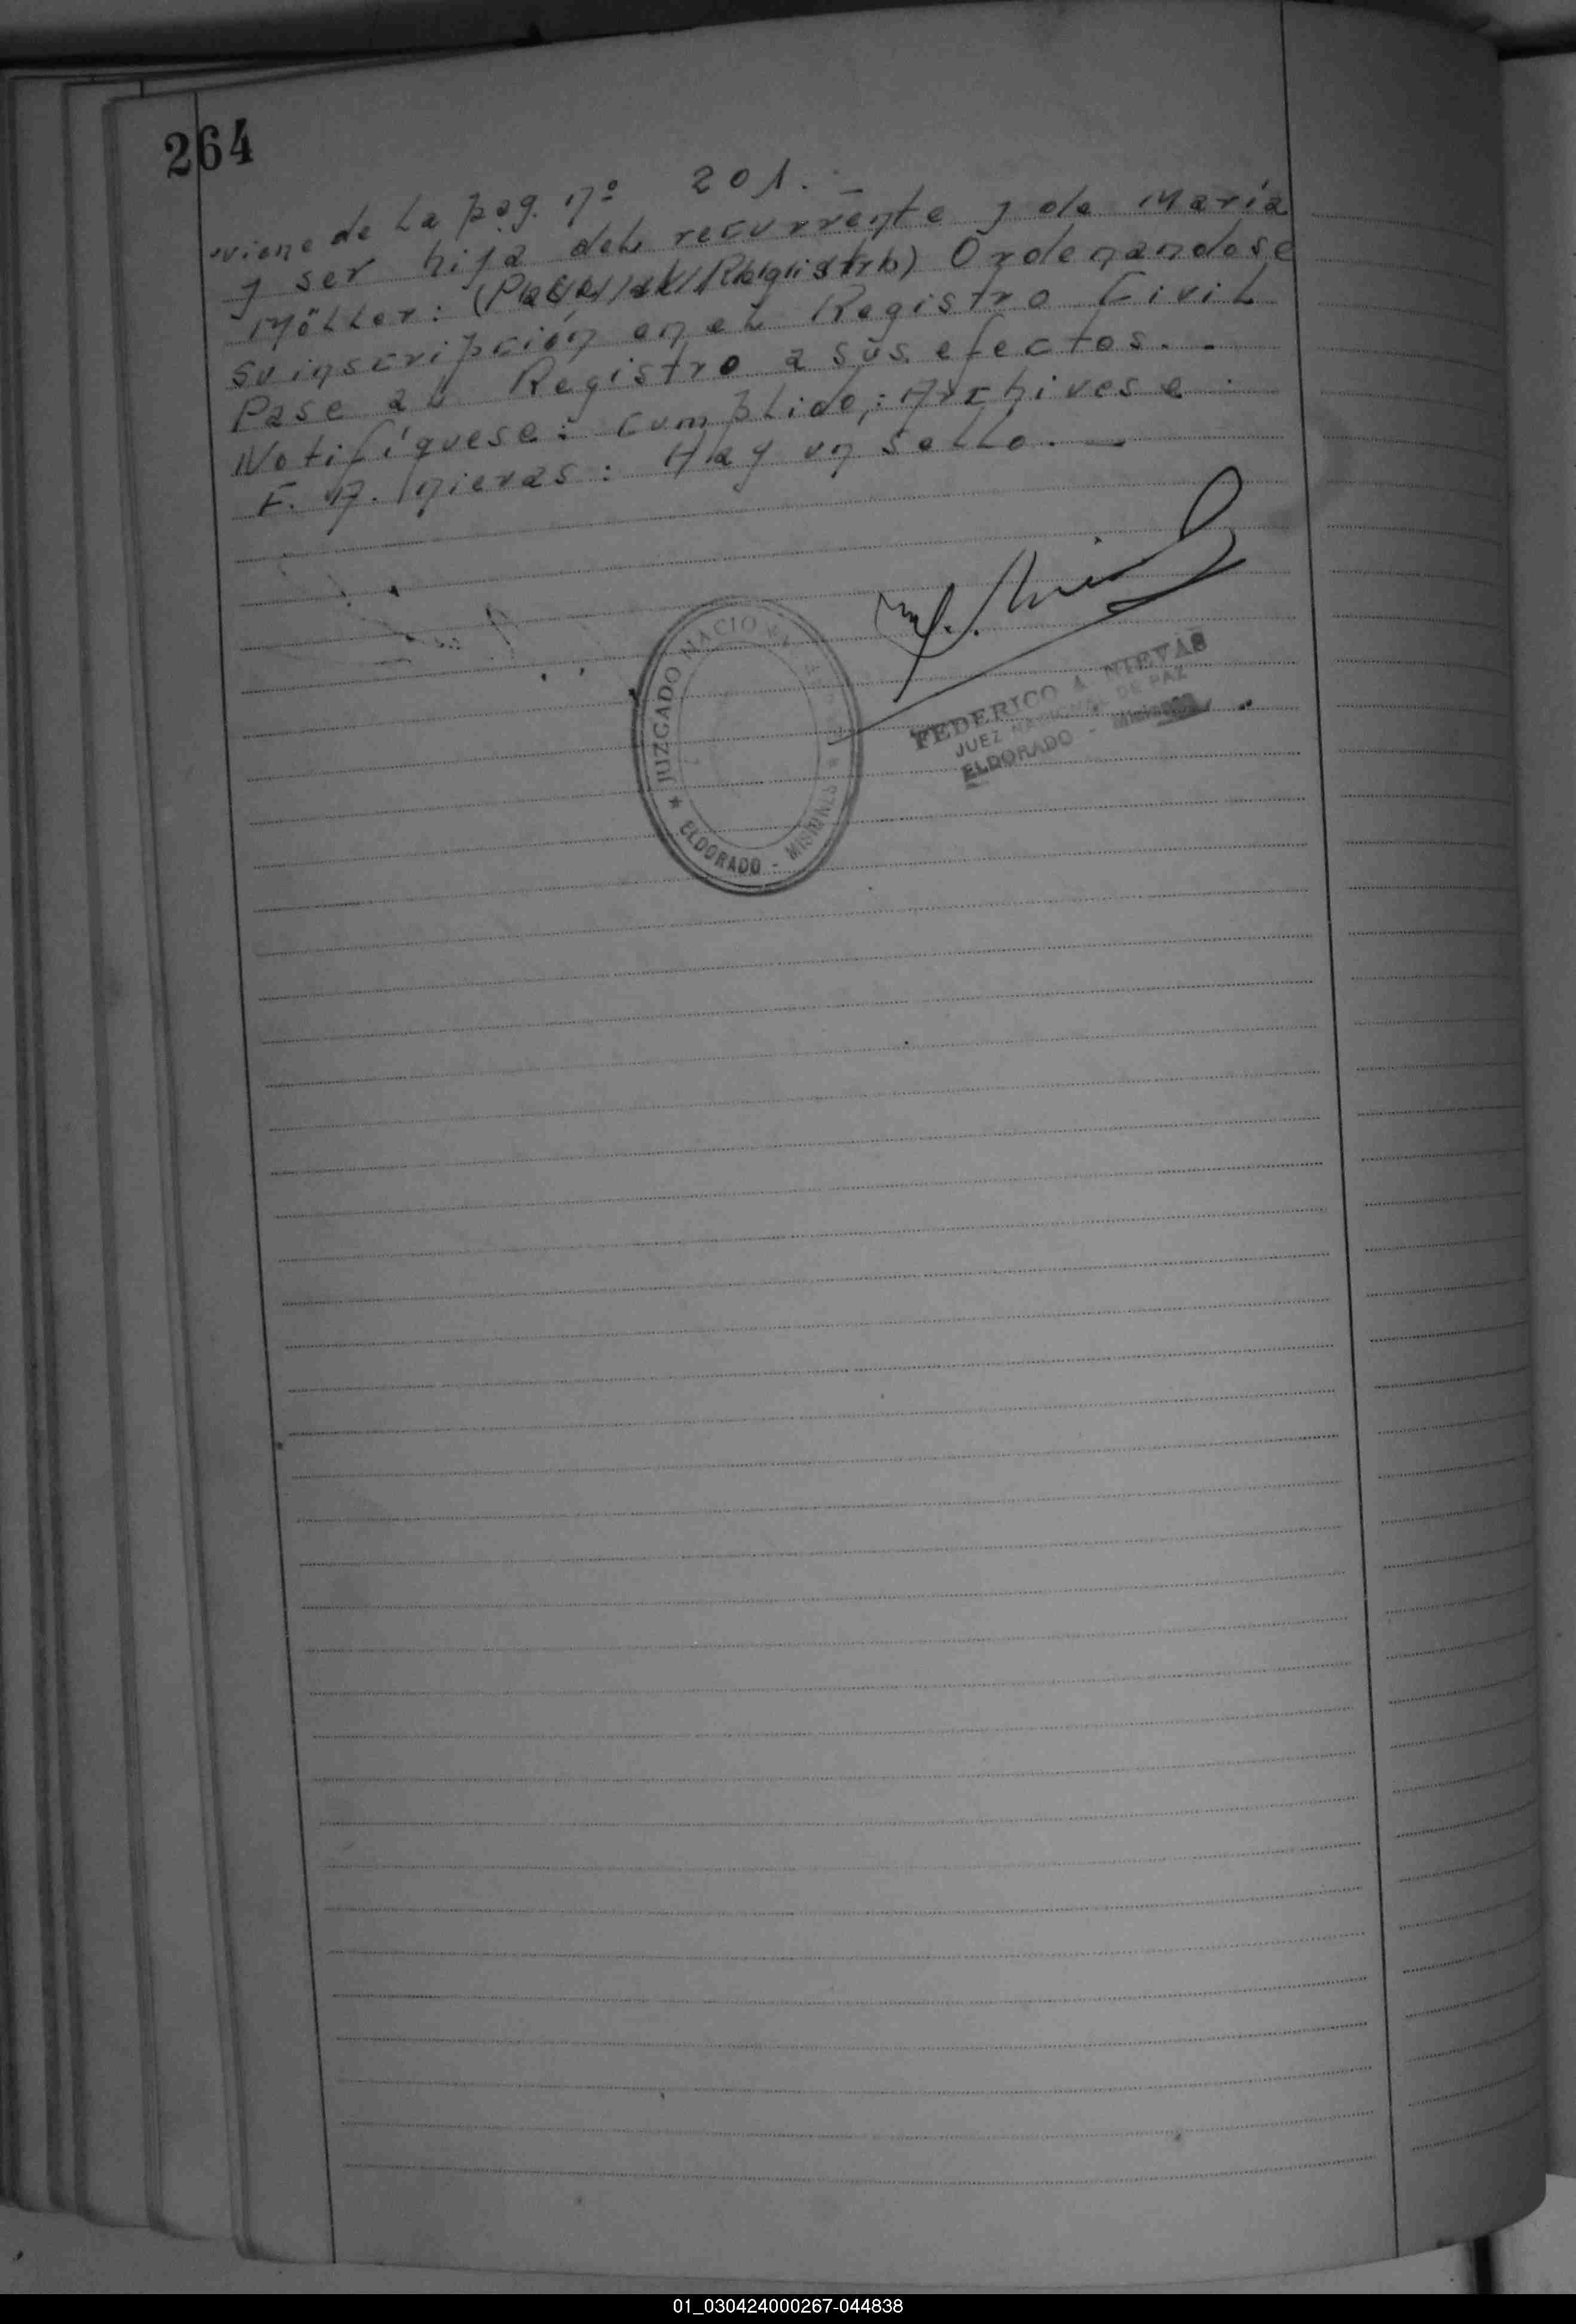 264
viene de La pag. nº 201. -
y ser hija del recurrente y de María
Möller: (Pase al Registro) Ordenandose
su inscripción en el Registro Civil
Pase al Registro a sus efectos. -
Notifíquese: cumplido,: Archivese.
F. A. nievas: Hay un sello. -
JUZGADO NACIO
★ ELDORADO - MISIONES ★
FEDERICO A. NIEVAS
JUEZ NACIONAL DE PAZ
ELDORADO - Misiones
01_030424000267-044838